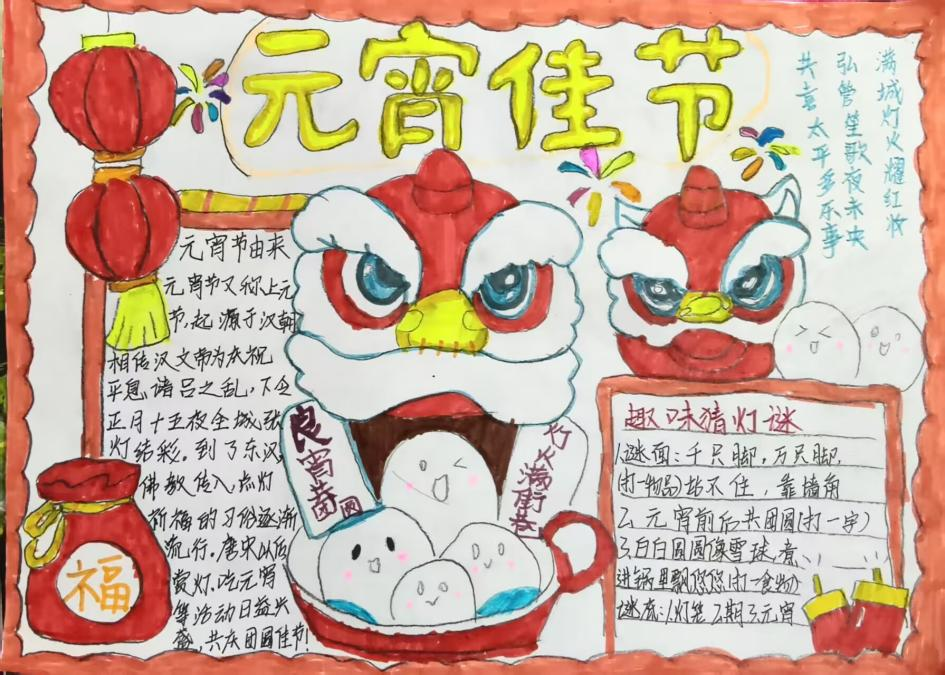 元宵佳节
满城灯火耀红妆
弘管笙歌夜未央
共言太平多乐事
元宵节由来
元宵节又称上元
节,起源于汉朝
相传汉文帝为庆祝
平息诸吕之乱,下令
正月十五夜全城张
灯结彩。到了东汉
佛教传入,点灯
祈福的习俗逐渐
流行。唐宋以后
赏灯、吃元宵
等活动日益兴
盛,共庆团圆佳节!
福
良宵尚圆
灯火满街巷
趣味猜灯谜
1.谜面:千只脚,万只脚,
(打一物品)站不住,靠墙角
2.元宵前后共团圆(打一字)
3.白白圆圆像雪球,煮
进锅里飘悠悠(打一食物)
谜底:1.灯笼 2.期 3.元宵